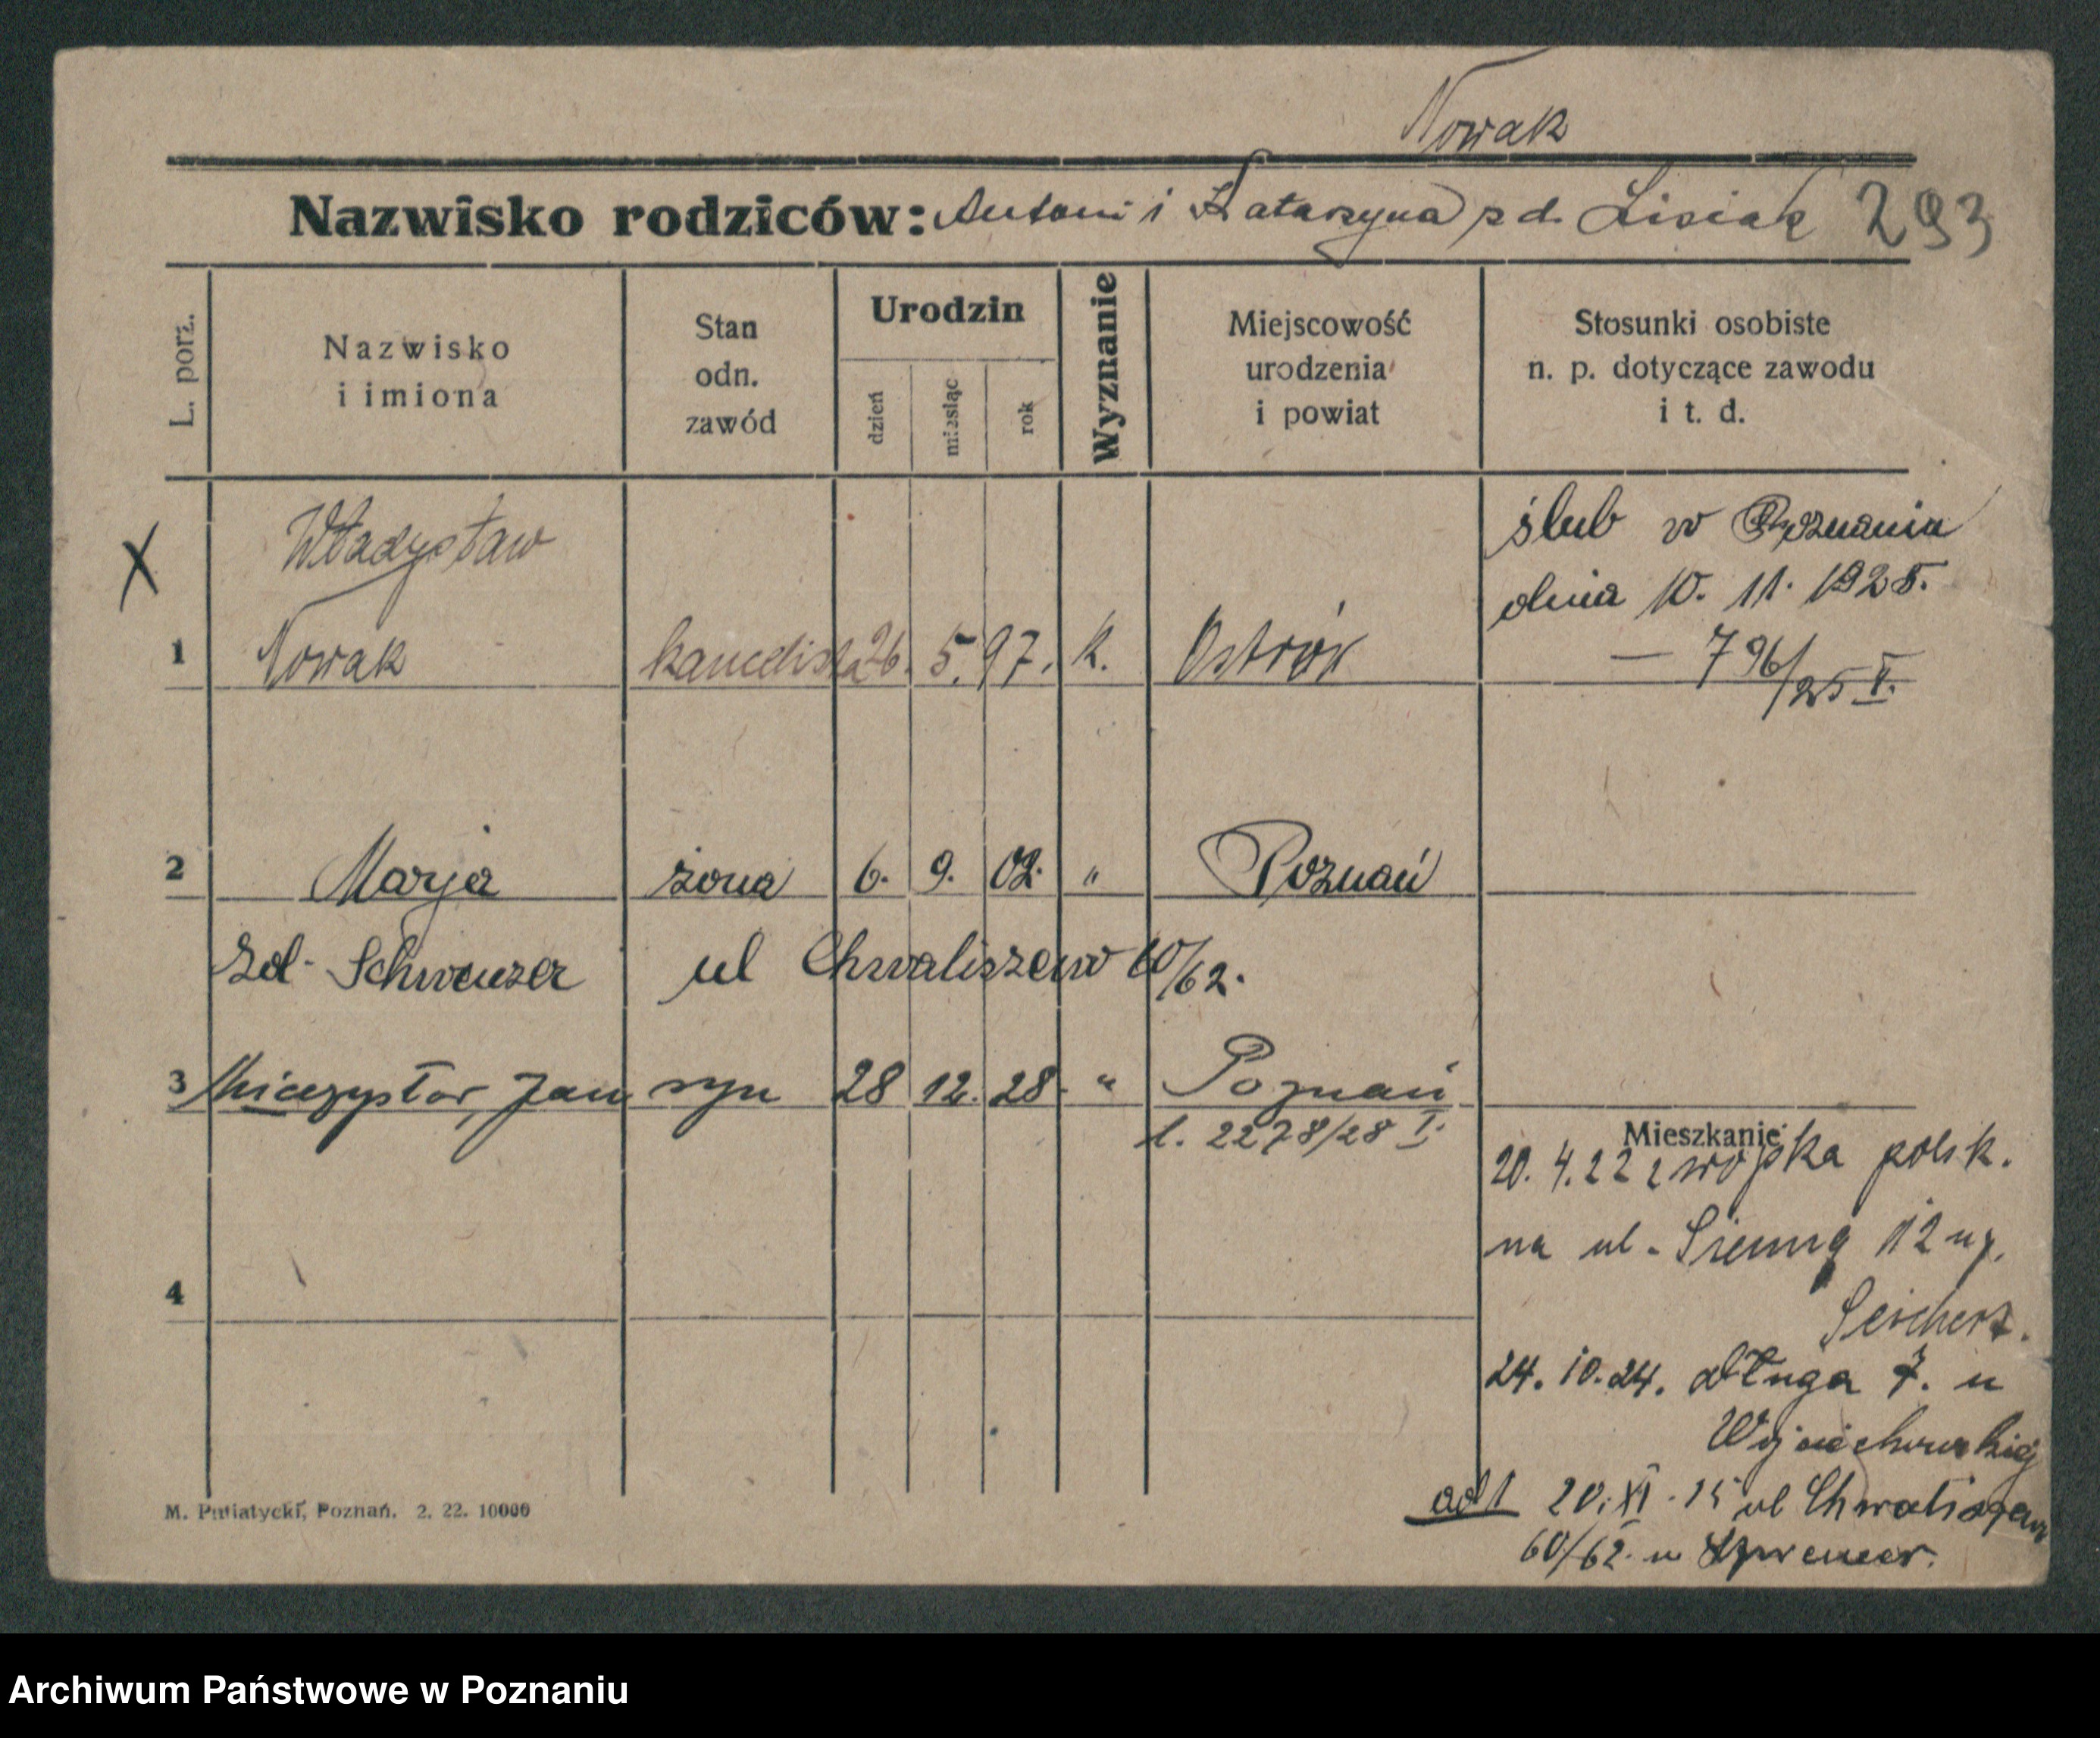 Nowak
Nazwisko rodziców: Antoni i Katarzyna zd. Lisiak 293
L. porz.
Nazwisko
i imiona
Stan
odn.
zawód
Urodzin
dzień
miesiąc
rok
Wyznanie
Miejscowość
urodzenia
i powiat
Stosunki osobiste
n. p. dotyczące zawodu
i t. d.
X
Władysław
1 Nowak kancelista 26. 5. 97. k. Ostrów
ślub w Poznaniu
dnia 10. 11. 1925.
— 796/25 V.
2 Marja żona 6. 9. 02. " Poznań
zd. ul Chwaliszewo 60/62.
3 Mieczysław, Jan syn 28 12. 28. " Poznań
l. 2278/28 I.
4
Mieszkanie
20. 4. 22 z wojska polsk.
na ul. Sienną 12
24. 10. 24. długa 7. u
Wojciechowskiej
ad 1 20. XI. 25 ul Chwaliszewo
60/62. u
M. Putiatycki, Poznań. 2. 22. 10000
Archiwum Państwowe w Poznaniu